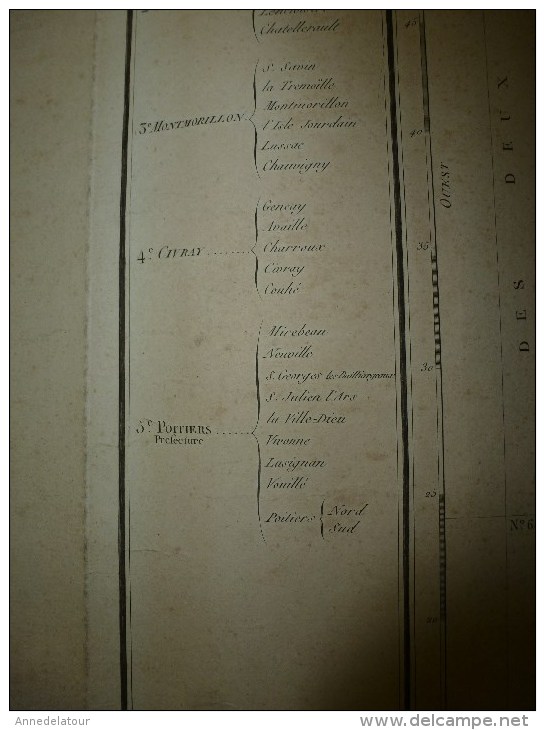 Chatellerault
3.e MONTMORILLON
S.t Savin
la Tremoille
Montmorillon
l'Isle Jourdain
Lussac
Chauvigny
4.e CIVRAY
Gençay
Availle
Charroux
Civray
Couhé
5.e POITIERS
Préfecture
Mirebeau
Neuville
S.t Georges les Baillargeaux
S.t Julien l'Ars
la Ville-Dieu
Vivonne
Lusignan
Vouillé
Poitiers
Nord
Sud
45
40
35
30
25
20
OUEST
DES DEUX
N.º 6
Annedelatour
www.delcampe.net